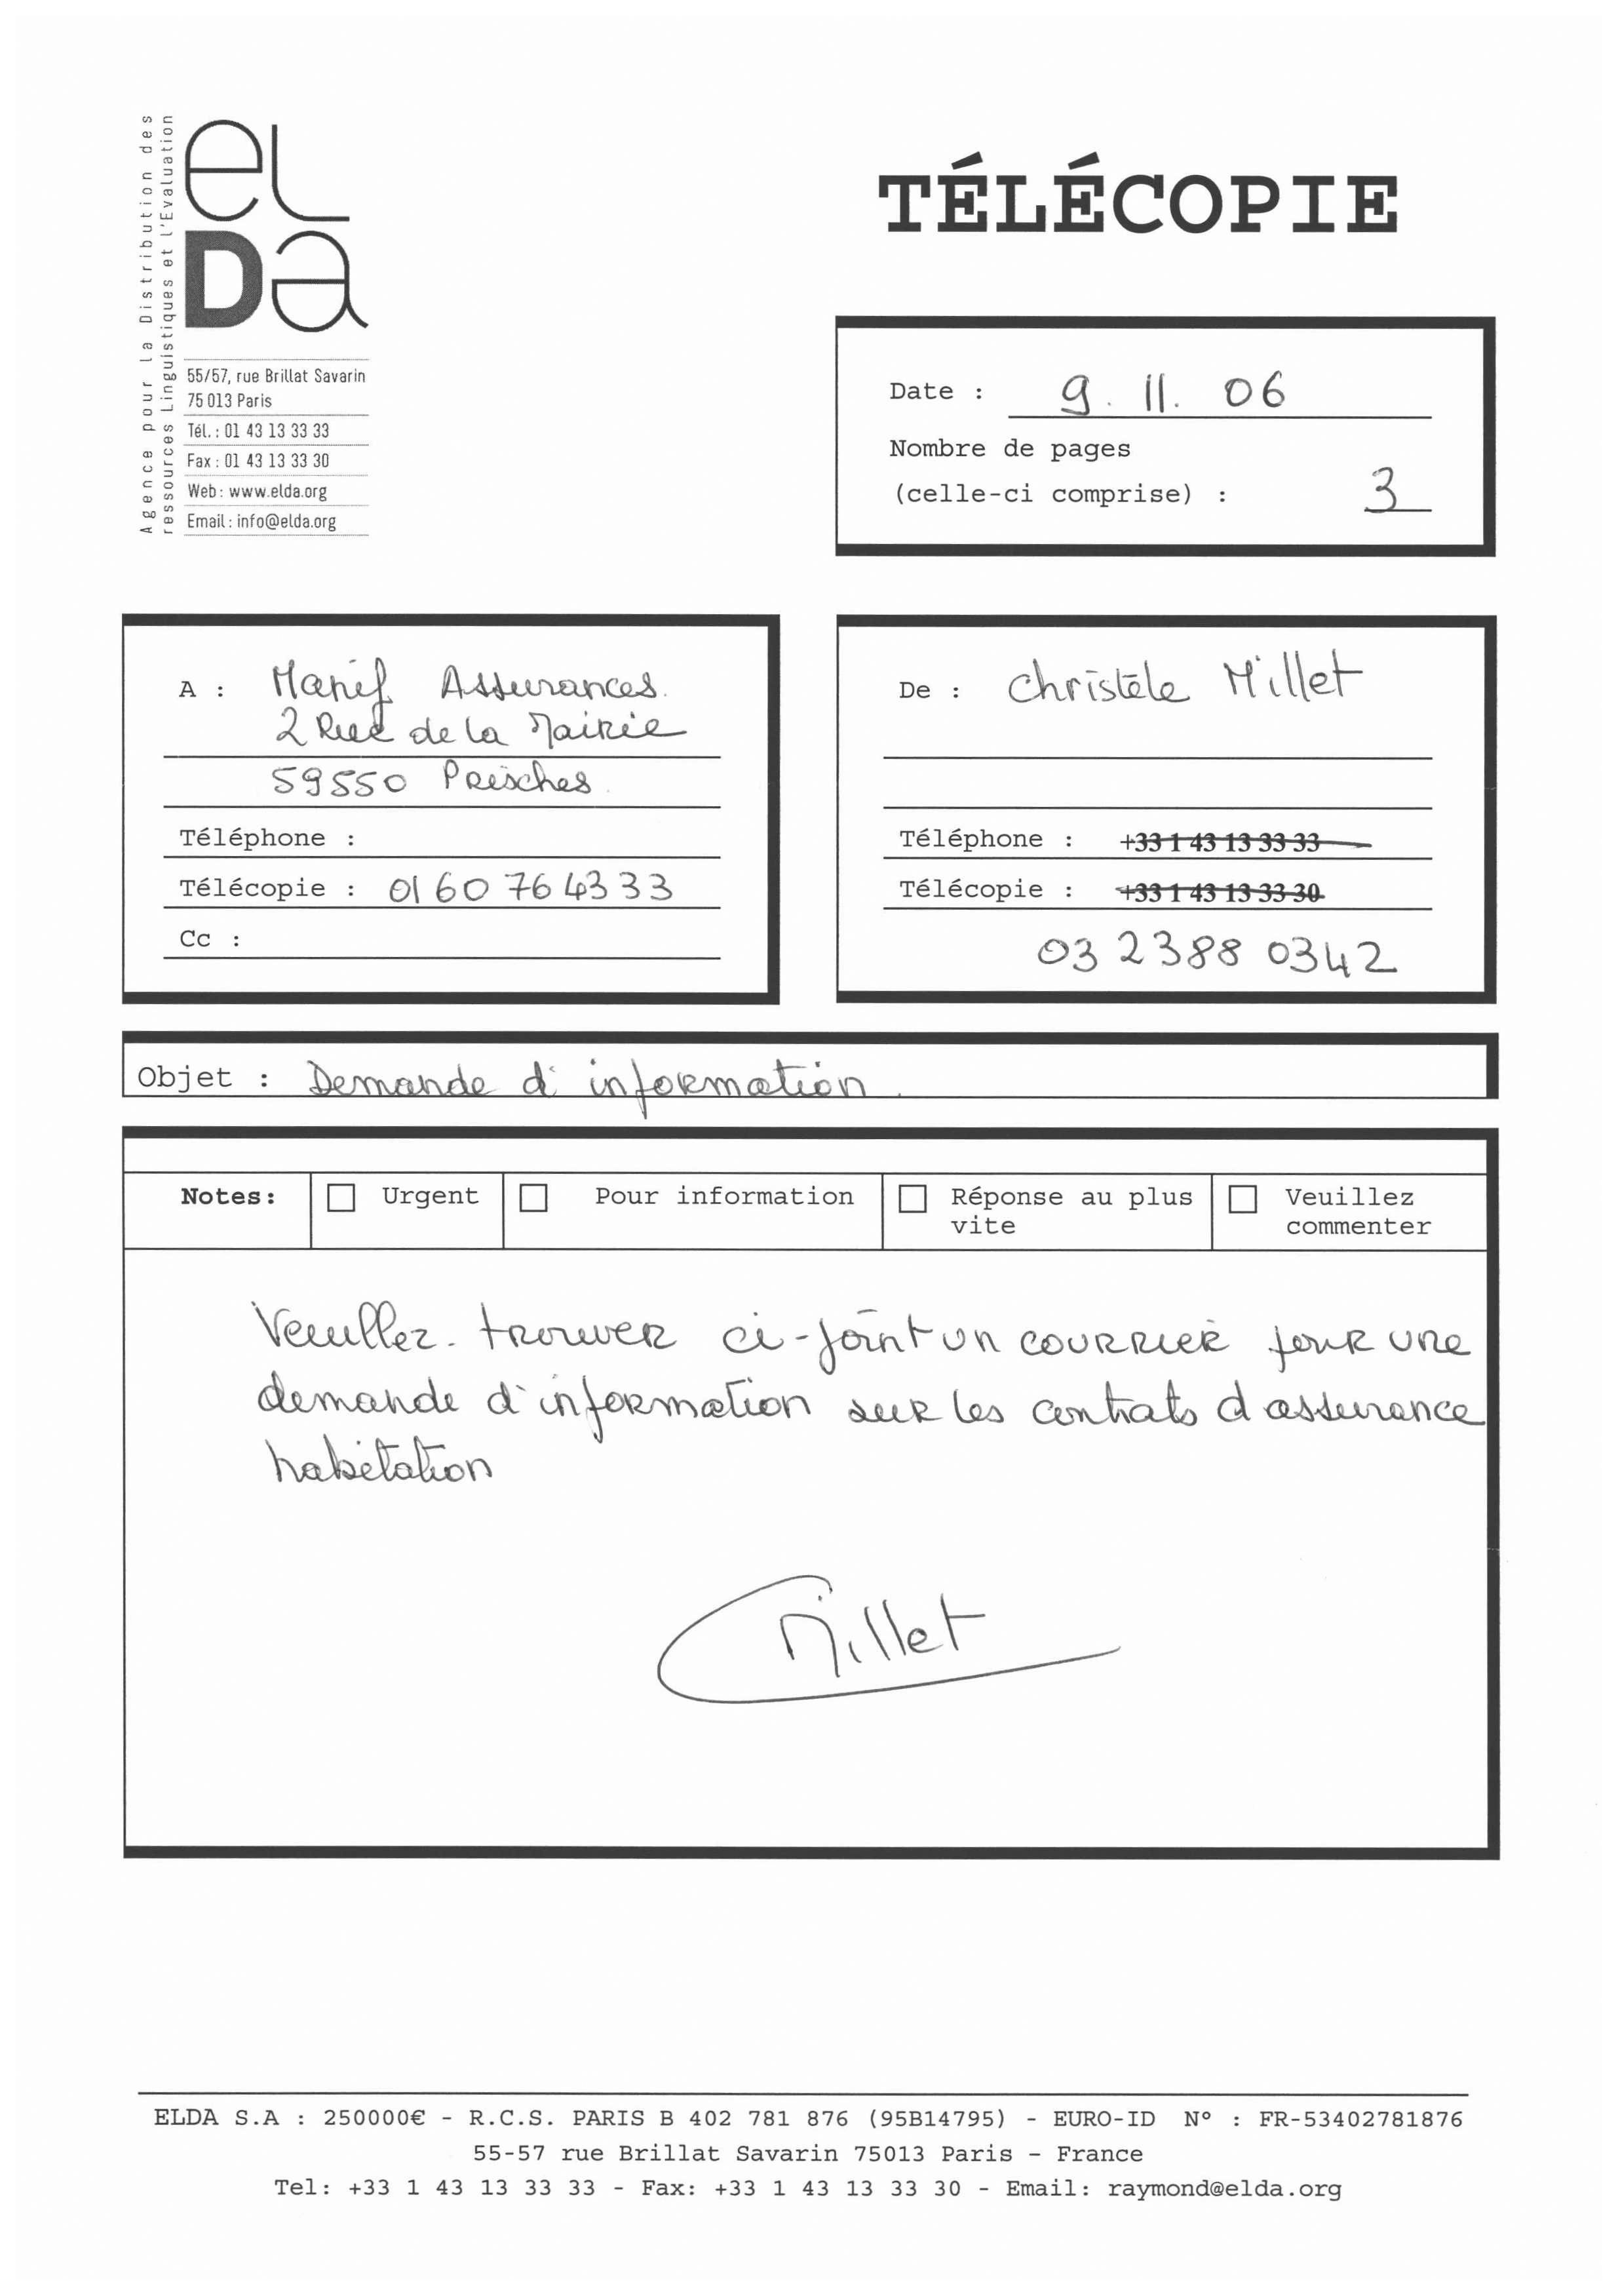 Agence pour la Distribution des
ressources Linguistiques et l'Evaluation
eL
Da
55/57, rue Brillat Savarin
75 013 Paris
Tél. : 01 43 13 33 33
Fax : 01 43 13 33 30
Web : www.elda.org
Email : info@elda.org
TÉLÉCOPIE
Date : 9. 11. 06
Nombre de pages
(celle-ci comprise) : 3
A : Manif Assurances.
2 Rue de la Mairie
59550 Prisches.
Téléphone :
Télécopie : 01 60 76 43 33
Cc :
De : Christèle Millet
Téléphone : +33 1 43 13 33 33
Télécopie : +33 1 43 13 33 30
03 23 88 03 42
Objet : Demande d'information.
Notes: Urgent Pour information Réponse au plus vite Veuillez commenter
Veuillez trouver ci-joint un courrier pour une
demande d'information sur les contrats d'assurance
habitation
Millet
ELDA S.A : 250000€ - R.C.S. PARIS B 402 781 876 (95B14795) - EURO-ID N° : FR-53402781876
55-57 rue Brillat Savarin 75013 Paris - France
Tel: +33 1 43 13 33 33 - Fax: +33 1 43 13 33 30 - Email: raymond@elda.org